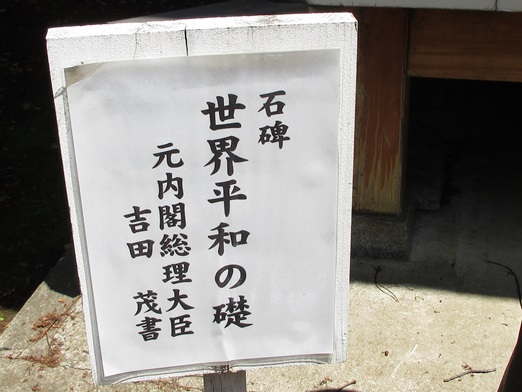 石碑
世界平和の礎
元内閣総理大臣
吉田 茂書